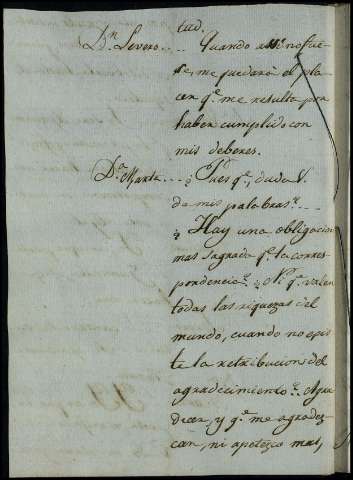 tud.
Dn. Severo... Quando assi no fue-
se, me quedará el pla-
cer qe. me resulta por
haber cumplido con
mis deberes.
Da. Marta... ¿Pues qe., duda V.
de mis palabras?..
¿Hay una obligacion
mas sagrada qe. la corres-
pondencia? ¿ qe. valen
todas las riquezas del
mundo, cuando no exis-
te la retribucion del
agradecimiento? Agra-
decer, y qe. me agradez-
can, ni apetezco mas,